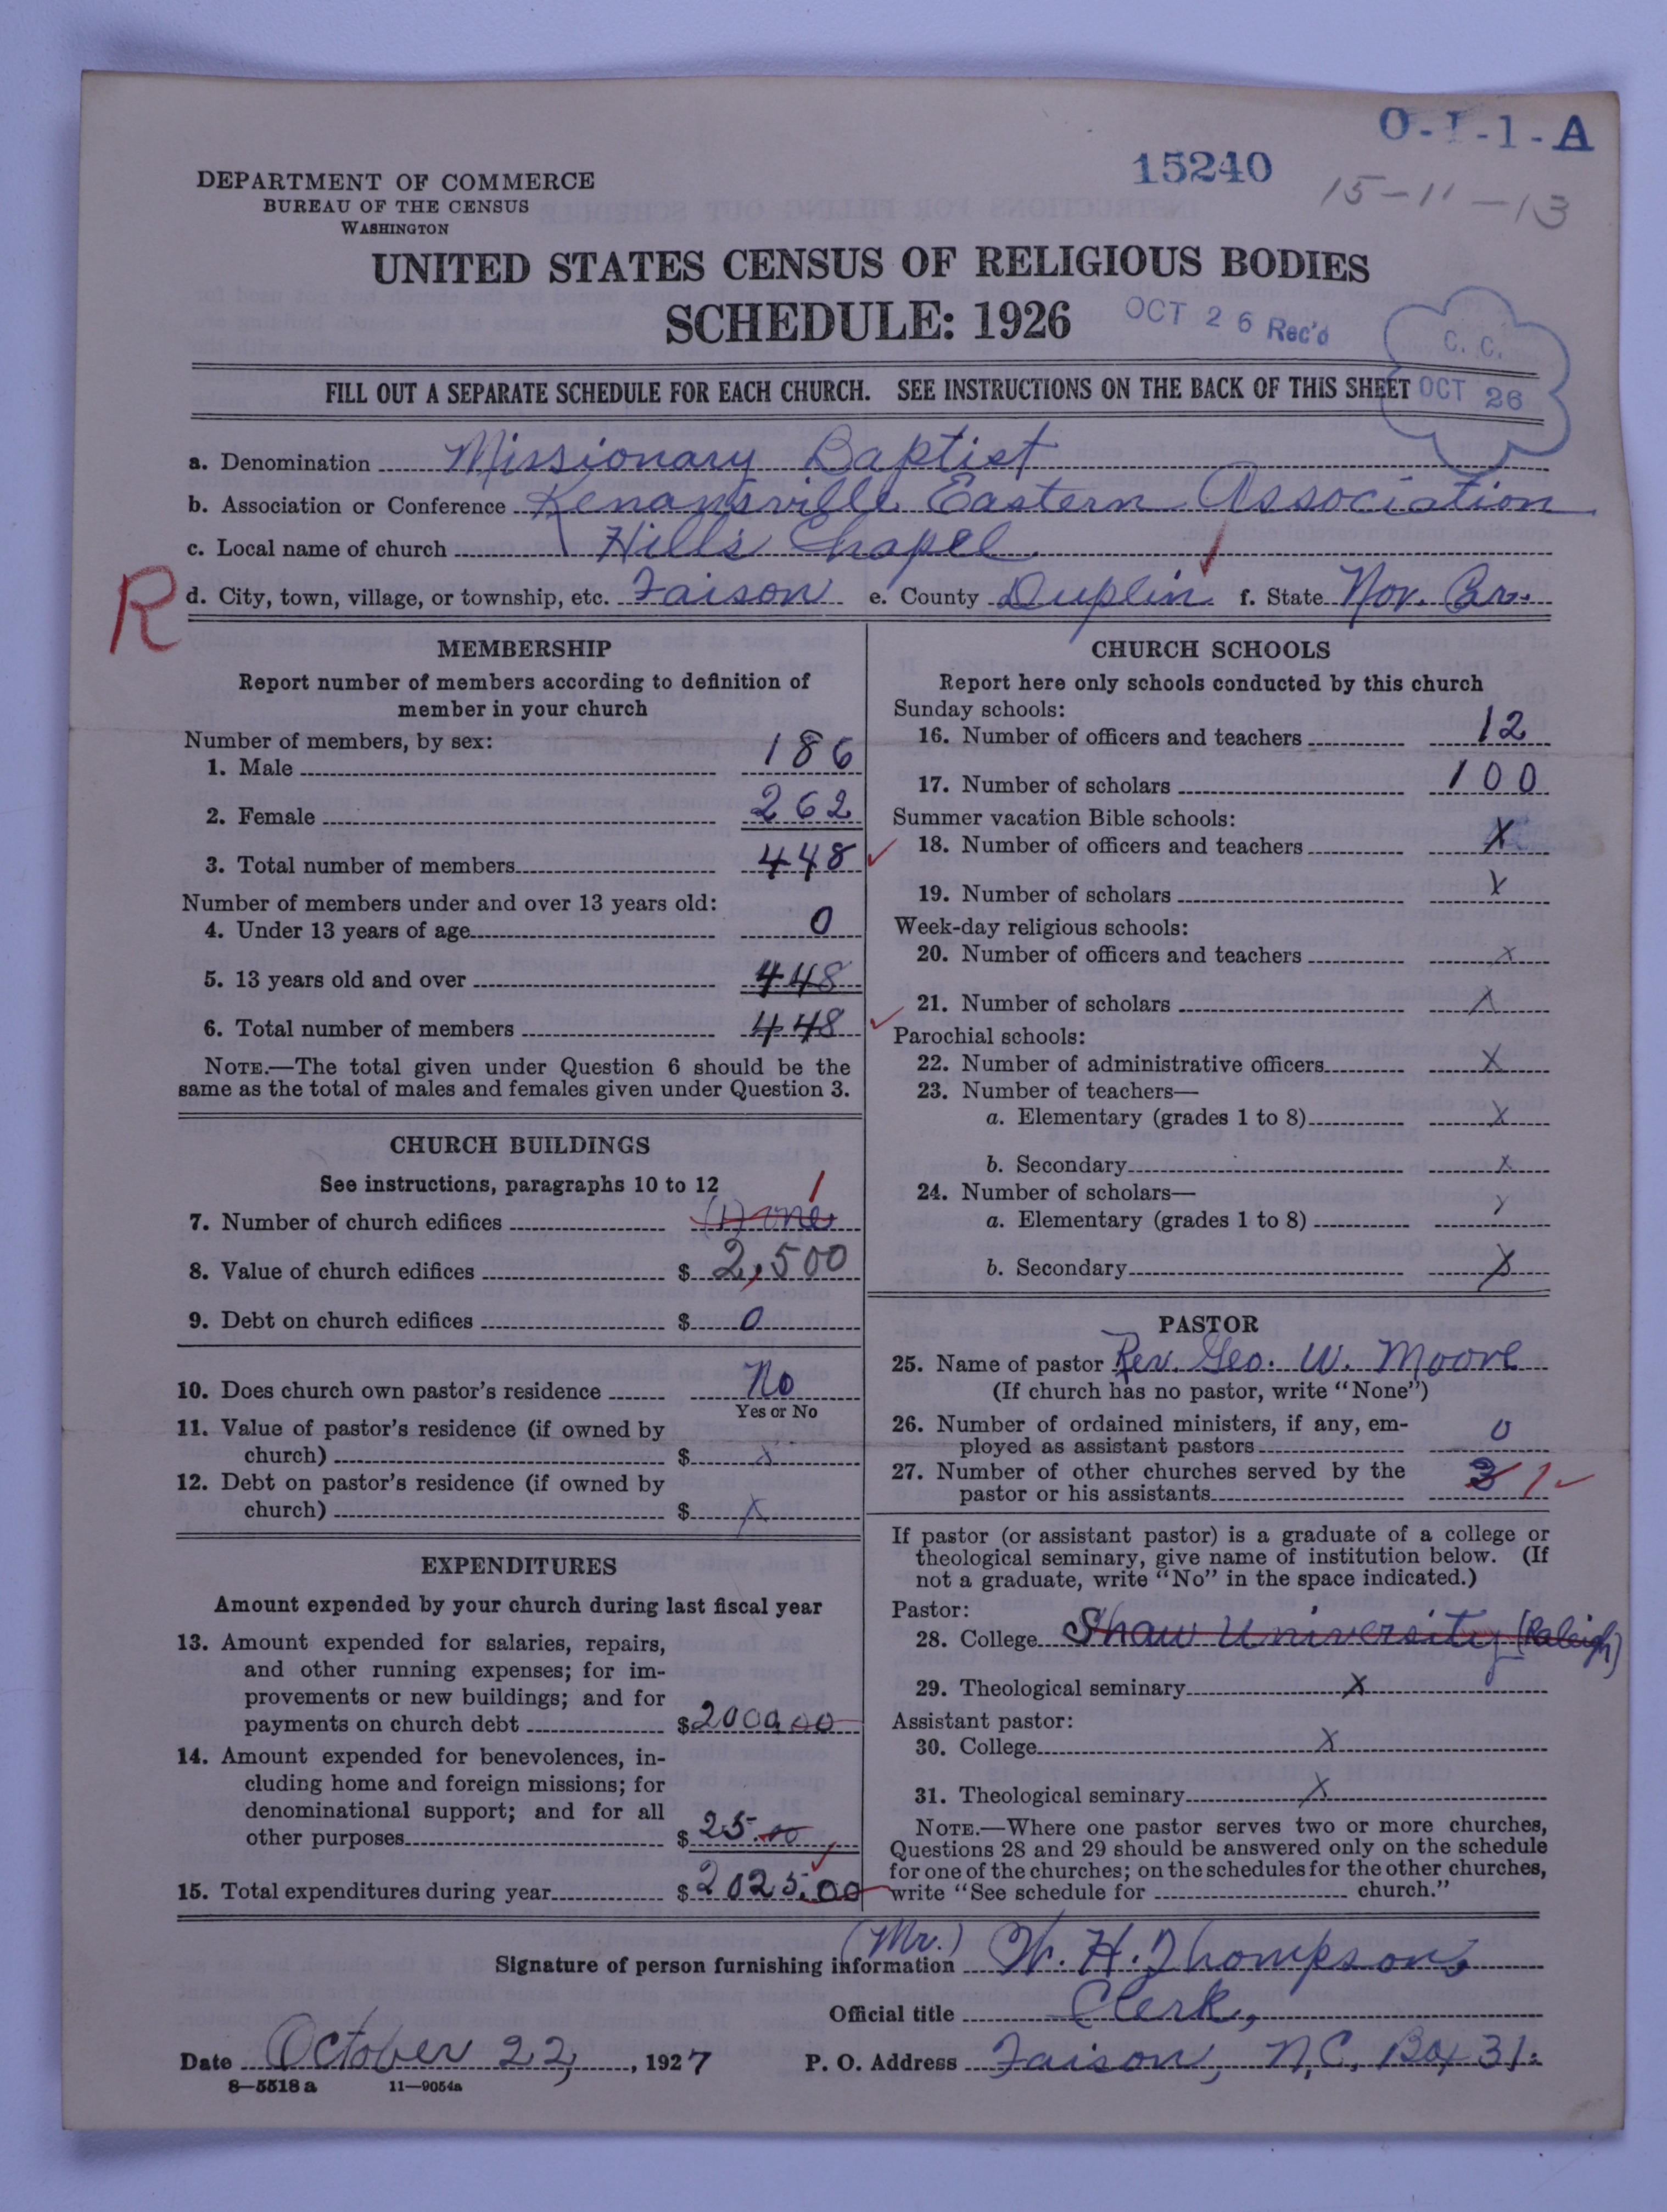 O-I-1-A
15240
15-11-13
DEPARTMENT OF COMMERCE
BUREAU OF THE CENSUS
WASHINGTON
UNITED STATES CENSUS OF RELIGIOUS BODIES
SCHEDULE: 1926
OCT 26 Rec'd
C. C.
OCT 26
FILL OUT A SEPARATE SCHEDULE FOR EACH CHURCH. SEE INSTRUCTIONS ON THE BACK OF THIS SHEET
a. Denomination Missionary Baptist
b. Association or Conference Kenansville Eastern Association
c. Local name of church Hill's Chapel
R
d. City, town, village, or township, etc. Faison e. County Duplin f. State Nor. Car.
MEMBERSHIP
Report number of members according to definition of
member in your church
Number of members, by sex:
1. Male 186
2. Female 262
3. Total number of members 448
Number of members under and over 13 years old:
4. Under 13 years of age 0
5. 13 years old and over 448
6. Total number of members 448
NOTE.—The total given under Question 6 should be the
same as the total of males and females given under Question 3.
CHURCH BUILDINGS
See instructions, paragraphs 10 to 12
7. Number of church edifices (1) one 1
8. Value of church edifices $ 2,500
9. Debt on church edifices $ 0
10. Does church own pastor's residence No
Yes or No
11. Value of pastor's residence (if owned by
church) $ x
12. Debt on pastor's residence (if owned by
church) $ X
EXPENDITURES
Amount expended by your church during last fiscal year
13. Amount expended for salaries, repairs,
and other running expenses; for im-
provements or new buildings; and for
payments on church debt $2000.00
14. Amount expended for benevolences, in-
cluding home and foreign missions; for
denominational support; and for all
other purposes $ 25.00
15. Total expenditures during year $ 2025.00
CHURCH SCHOOLS
Report here only schools conducted by this church
Sunday schools:
16. Number of officers and teachers 12
17. Number of scholars 100
Summer vacation Bible schools:
18. Number of officers and teachers X
19. Number of scholars X
Week-day religious schools:
20. Number of officers and teachers X
21. Number of scholars X
Parochial schools:
22. Number of administrative officers X
23. Number of teachers—
a. Elementary (grades 1 to 8) X
b. Secondary X
24. Number of scholars—
a. Elementary (grades 1 to 8) X
b. Secondary X
PASTOR
25. Name of pastor Rev. Geo. W. Moore
(If church has no pastor, write "None")
26. Number of ordained ministers, if any, em-
ployed as assistant pastors 0
27. Number of other churches served by the
pastor or his assistants 3 1
If pastor (or assistant pastor) is a graduate of a college or
theological seminary, give name of institution below. (If
not a graduate, write "No" in the space indicated.)
Pastor:
28. College Shaw University (Raleigh)
29. Theological seminary X
Assistant pastor:
30. College X
31. Theological seminary X
NOTE.—Where one pastor serves two or more churches,
Questions 28 and 29 should be answered only on the schedule
for one of the churches; on the schedules for the other churches,
write "See schedule for church."
Signature of person furnishing information (Mr.) W. H. Thompson,
Official title Clerk,
Date October 22, 1927 P. O. Address Faison, N.C. Box 31.
8—5518 a 11—9054a